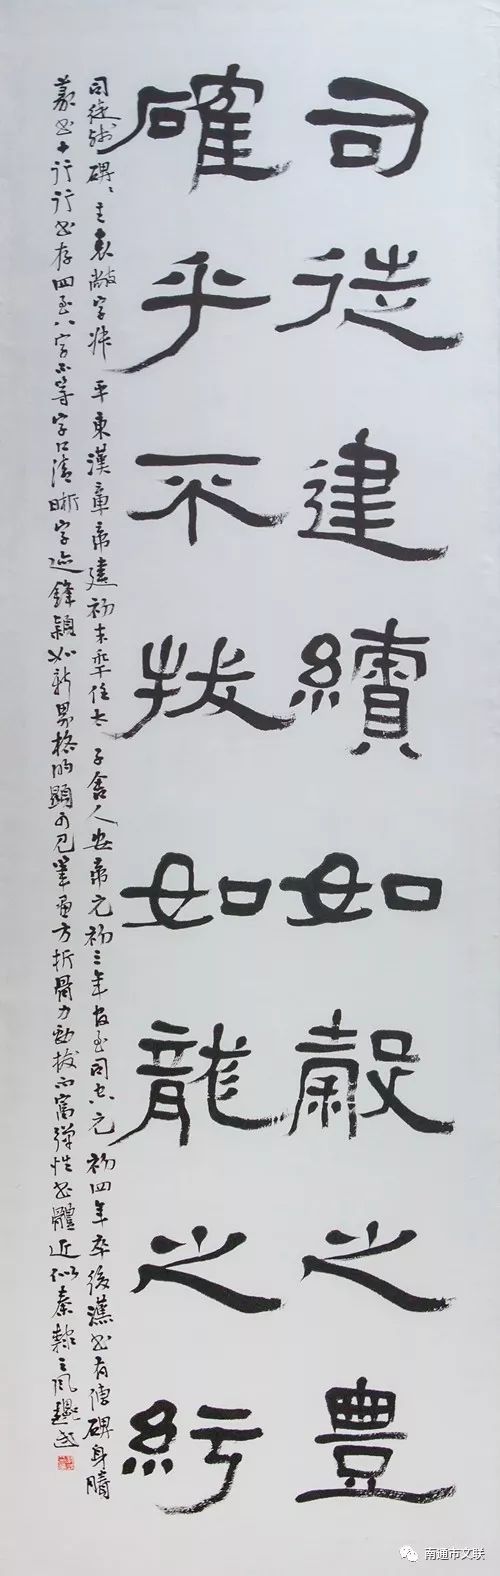 司徒建續如穀之豊
確乎不拔如龍之紆
司徒殘碑〻主袁敞字叔平東漢章帝建初末年任太子舍人安帝元初三年官至司空元初四年卒後漢書有傳碑身
篆書十行行書存四至八字不等字口清晰字迹鋒穎如新界格明顯可見筆畫方折骨力勁拔而富彈性書體近似秦隸之風
南通市文联